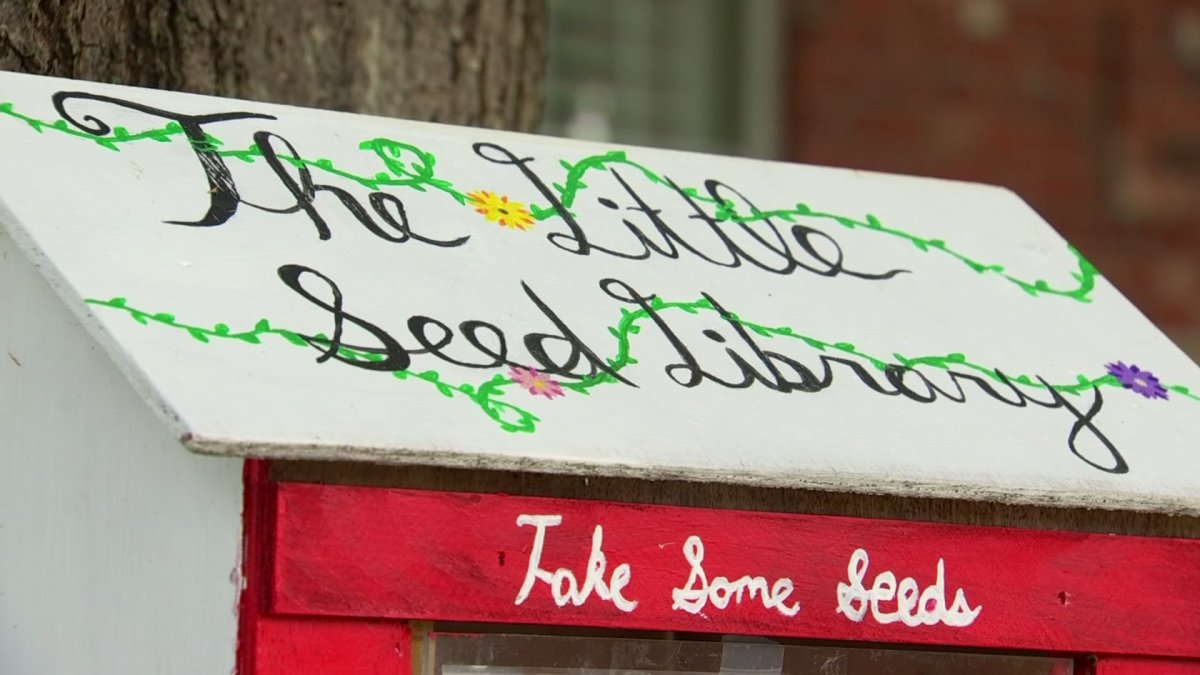 The Little
Seed Library
Take Some Seeds